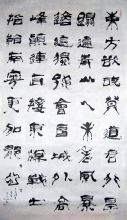 東方欲曉莫道君行早
踏遍青山人未老風景
這邊獨好會昌城外高
峰顛連直接東溟戰士
指看南粵更加鬱鬱葱葱